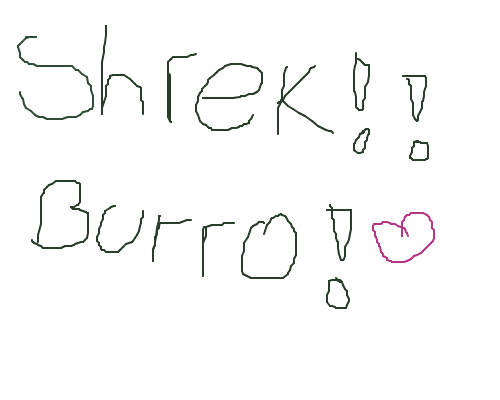 Shrek!!
Burro!